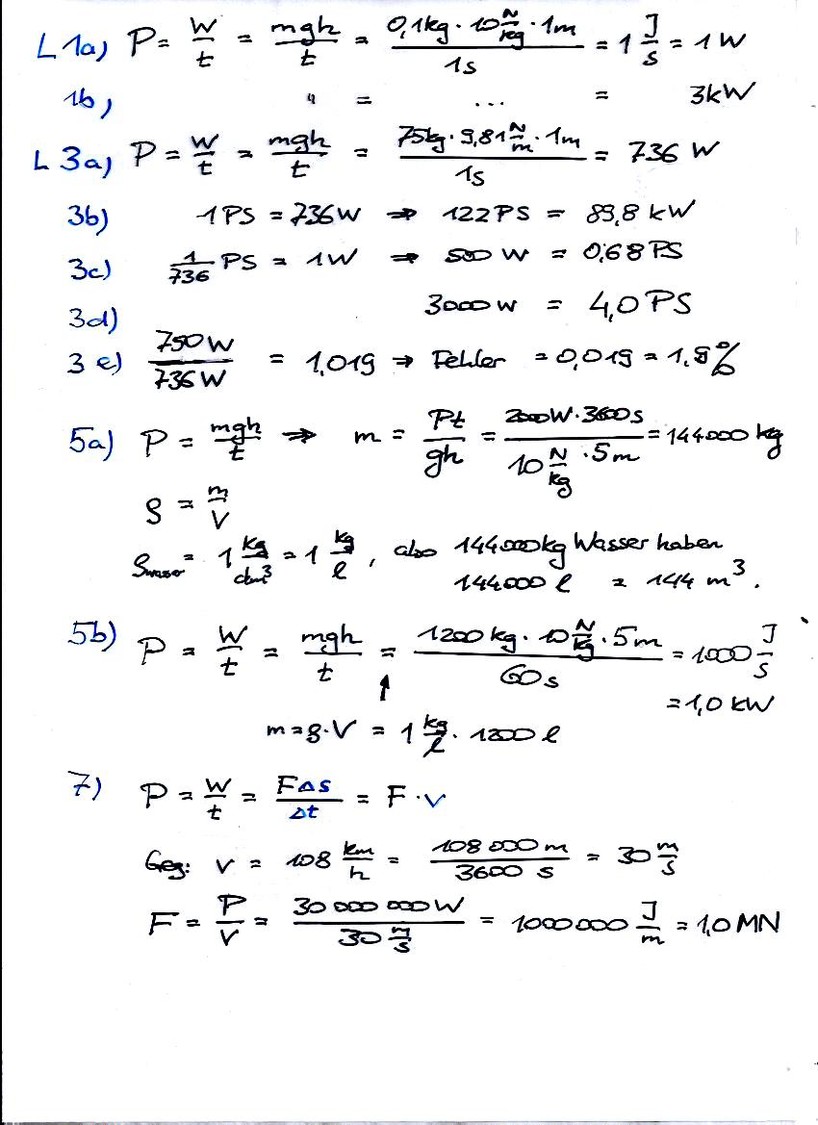 L1a) P = W/t = mgh/t = 0,1kg · 10 N/kg · 1m / 1s = 1 J/s = 1 W
1b) " = ... = 3kW
L3a) P = W/t = mgh/t = 75kg · 9,81 N/m · 1m / 1s = 736 W
3b) 1PS = 736W ⇒ 122PS = 89,8 kW
3c) 1/736 PS = 1W ⇒ 500 W = 0,68 PS
3d) 3000 W = 4,0 PS
3e) 750W / 736W = 1,019 ⇒ Fehler = 0,019 = 1,9%
5a) P = mgh/t ⇒ m = Pt/gh = 2000W · 3600s / 10 N/kg · 5m = 144000 kg
ρ = m/V
ρWasser = 1 kg/dm³ = 1 kg/l, also 144000kg Wasser haben
144000 l = 144 m³.
5b) P = W/t = mgh/t = 1200 kg · 10 N/kg · 5m / 60s = 1000 J/s
= 1,0 kW
↑
m = ρ · V = 1 kg/l · 1200 l
7) P = W/t = FΔs/Δt = F · v
Geg: v = 108 km/h = 108 000 m / 3600 s = 30 m/s
F = P/v = 30 000 000 W / 30 m/s = 1000 000 J/m = 1,0 MN